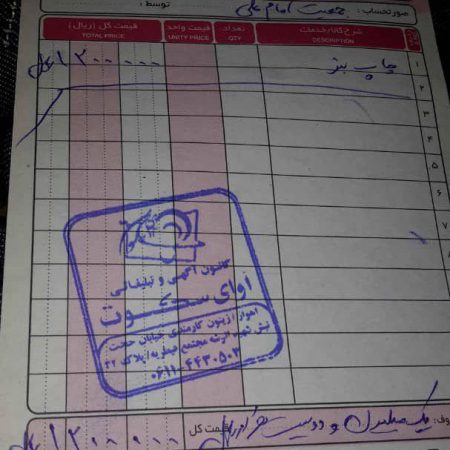 صورتحساب: جمعیت امام علی توسط:
ردیف شرح کالا/خدمت تعداد قیمت واحد قیمت کل (ریال)
DESCRIPTION QTY UNITY PRICE TOTAL PRICE
۱ چاپ بنر ۱۲۰۰۰۰۰ ریال
۲
۳
۴
۵
۶
۷
۸
کانون آگهی و تبلیغاتی
آوای سکوت
اهواز زیتون کارمندی خیابان حجت
۰۶۱۱-۴۴۳۰۵۰۲
یک میلیون و دویست هزار ریال قیمت کل ۱۲۰۰۰۰۰ ریال